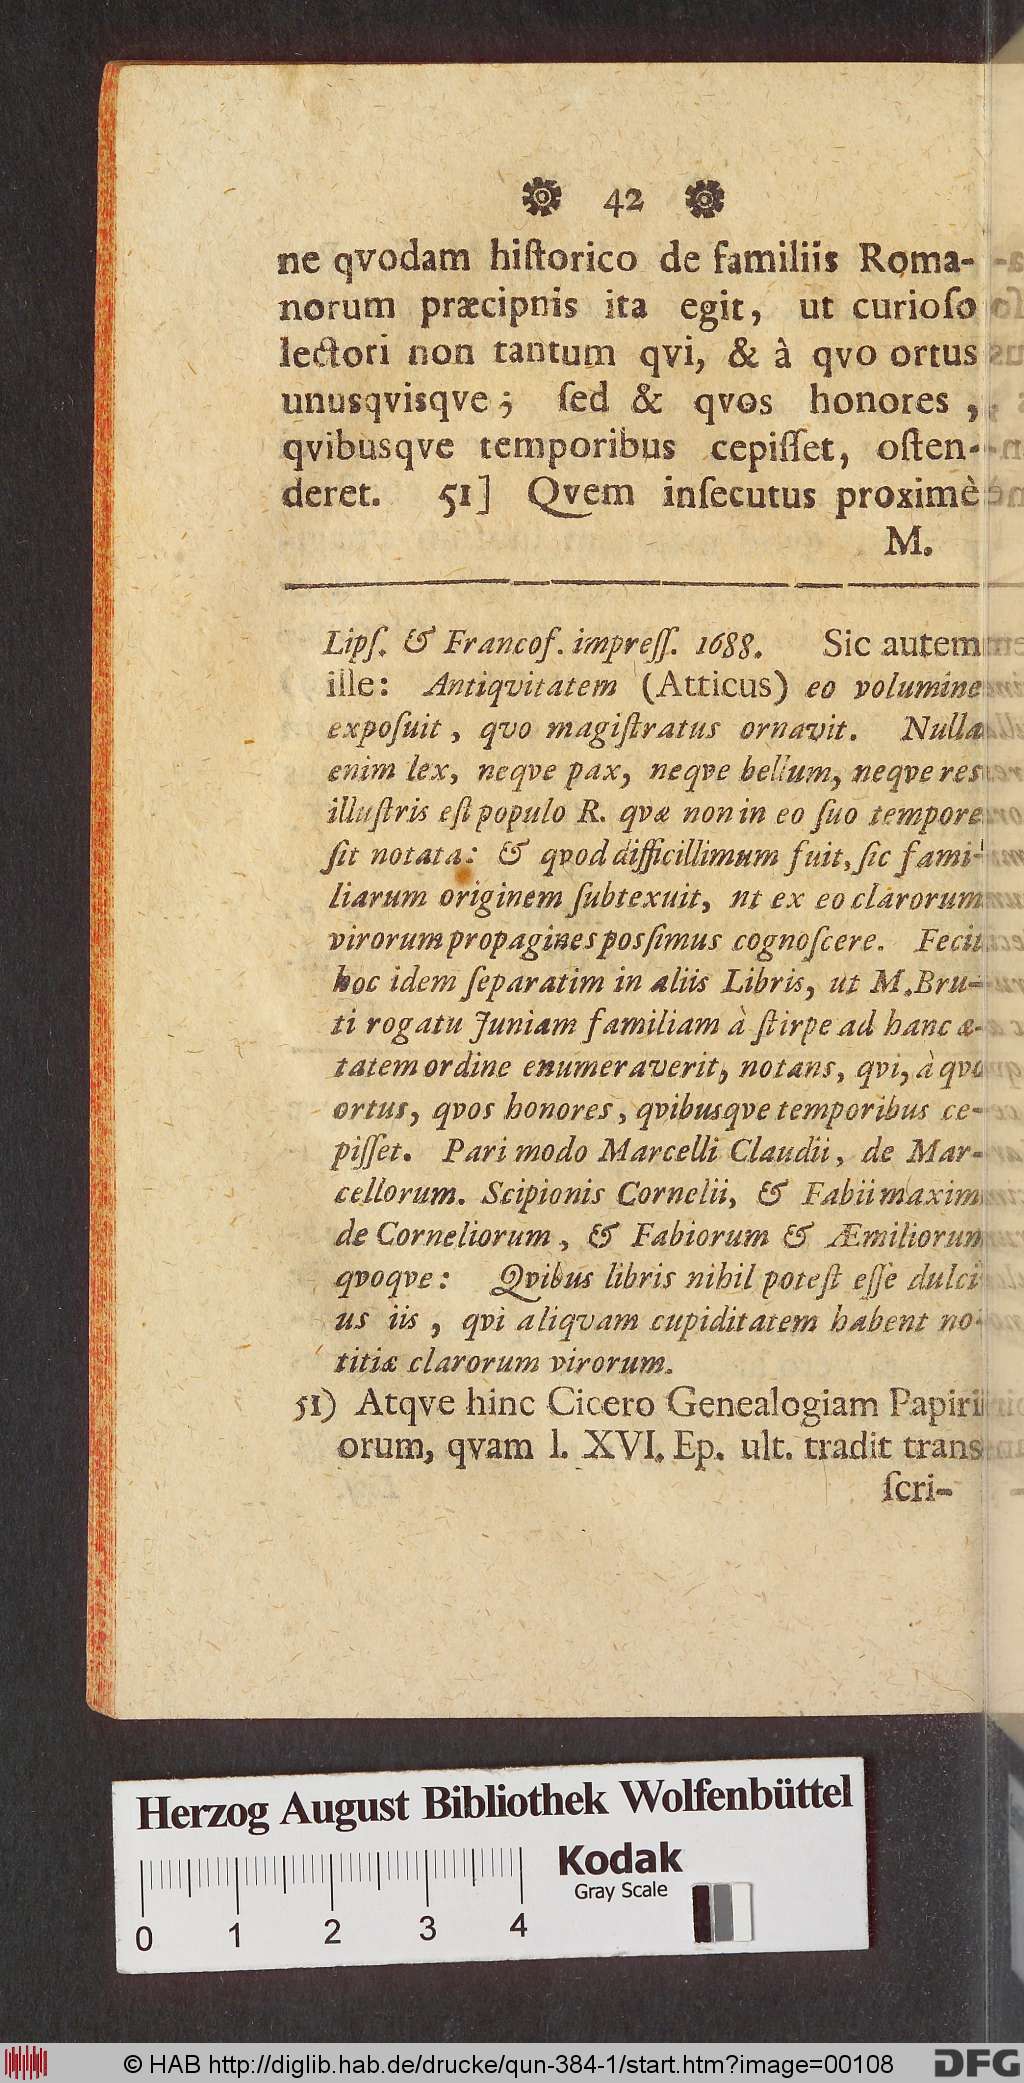 42
ne qvodam hiſtorico de familiis Roma-
norum præcipnis ita egit, ut curioſo
lectori non tantum qvi, & à qvo ortus
unusqvisqve; ſed & qvos honores,
qvibusqve temporibus cepiſſet, oſten-
deret. 51] Qvem inſecutus proximè
M.
Lipſ. & Francof. impreſſ. 1688. Sic autem
ille: Antiqvitatem (Atticus) eo volumine
expoſuit, qvo magiſtratus ornavit. Nulla
enim lex, neqve pax, neqve bellum, neqve res
illuſtris eſt populo R. qvæ non in eo ſuo tempore
ſit notata: & qvod difficillimum fuit, ſic fami-
liarum originem ſubtexuit, nt ex eo clarorum
virorum propagines possimus cognoſcere. Fecit
hoc idem ſeparatim in aliis Libris, ut M. Bru-
ti rogatu Juniam familiam à ſtirpe ad hanc æ-
tatem ordine enumeraverit, notans, qvi, à qvo
ortus, qvos honores, qvibusqve temporibus ce-
piſſet. Pari modo Marcelli Claudii, de Mar-
cellorum. Scipionis Cornelii, & Fabii maximi
de Corneliorum, & Fabiorum & Æmiliorum
qvoqve: Qvibus libris nihil poteſt eſſe dulci
us iis, qvi aliqvam cupiditatem habent no-
titiæ clarorum virorum.
51) Atqve hinc Cicero Genealogiam Papiri
orum, qvam l. XVI. Ep. ult. tradit trans
ſcri-
Herzog August Bibliothek Wolfenbüttel
Kodak
Gray Scale
0 1 2 3 4
© HAB http://diglib.hab.de/drucke/qun-384-1/start.htm?image=00108
DFG